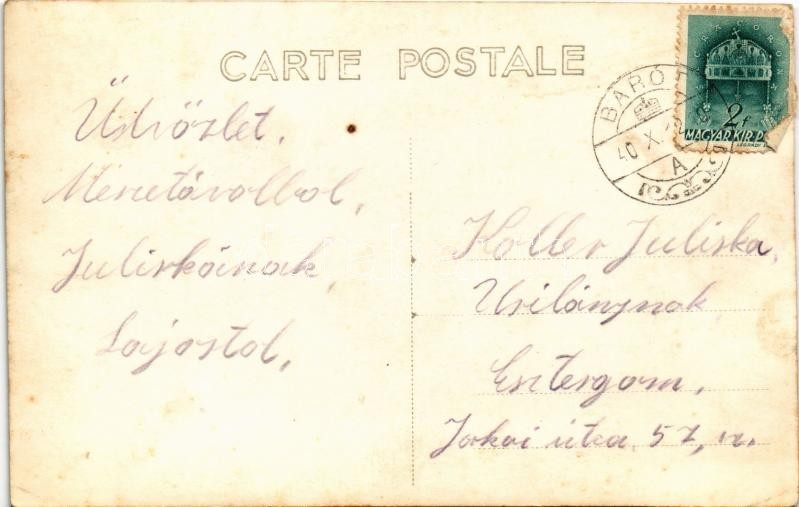 CARTE POSTALE
Üdvözlet,
Messetávolbol,
Juliskának,
Lajostol,
BARÓT
40 X.
A
2f
MAGYAR KIR. P
Koller Juliska,
Urilánynak
Esztergom,
Jokai utca 57,